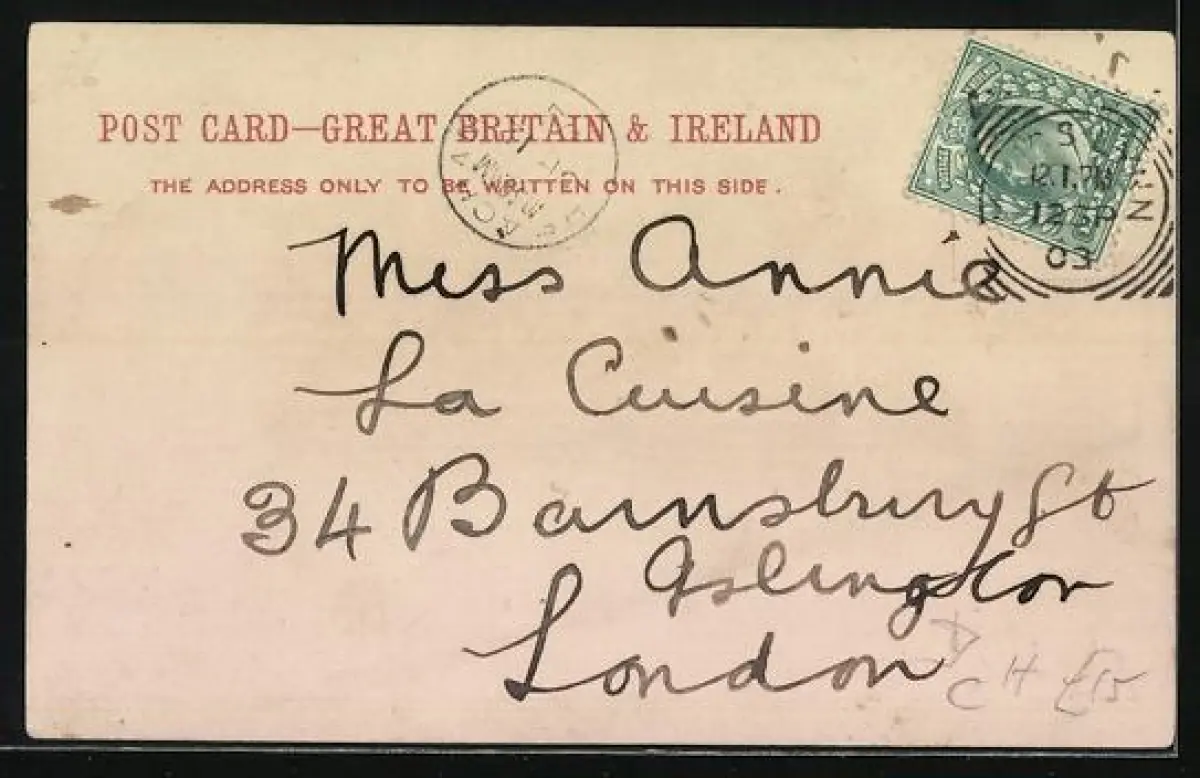 POST CARD—GREAT BRITAIN & IRELAND
THE ADDRESS ONLY TO BE WRITTEN ON THIS SIDE.
Miss Annie
La Cuisine
34 Barnsbury St
Islington
London
C H £15